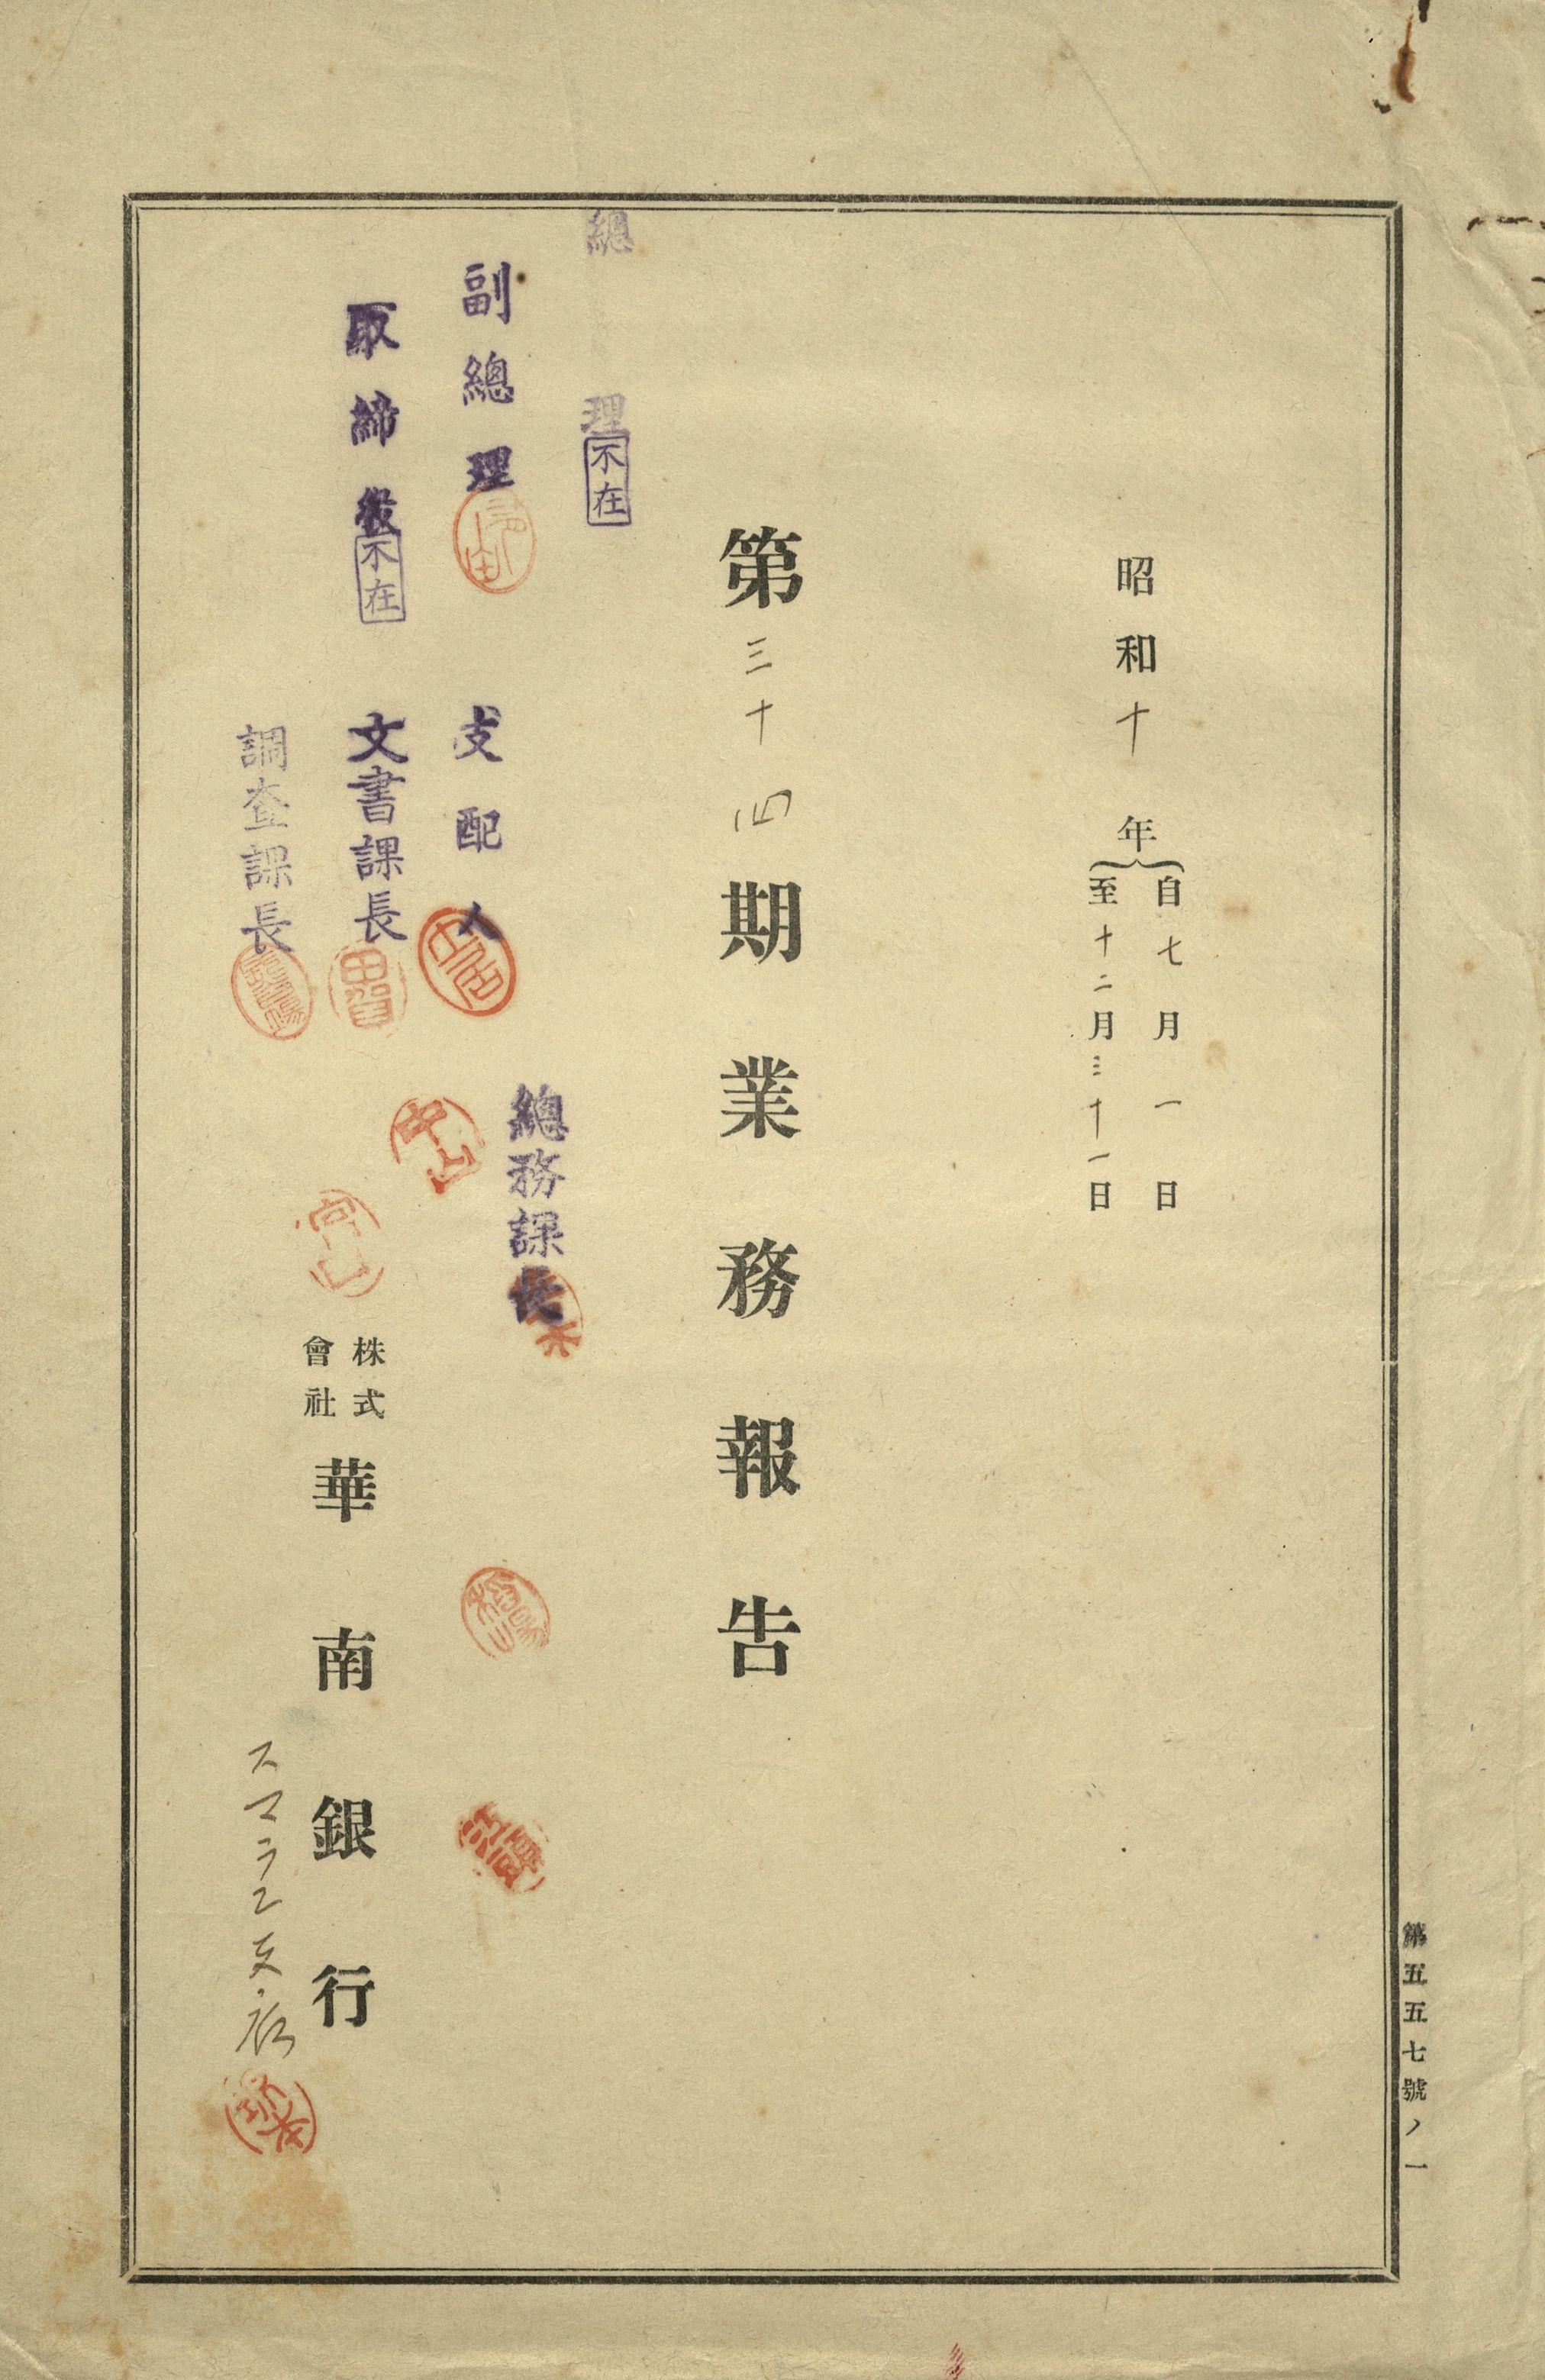 第五五七號ノ一
昭和十年
自七月一日
至十二月三十一日
第三十四期業務報告
總理
不在
副總理
支配人
總務課長
取締役
不在
文書課長
調査課長
中山
株式
會社
華南銀行
スマラン支店